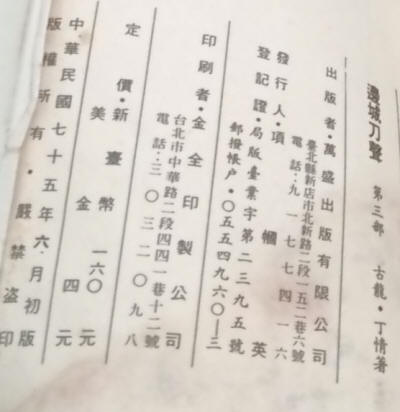 邊城刀聲 第三部 古龍·丁情著
出版者·萬盛出版有限公司
臺北縣新店市北新路二段一五二巷六號
電話·九一七七四一六
發行人·項 英
登記證·局版臺業字第二三九五號
郵撥帳户·○五五四九六○—三
印刷者·金全印製公司
台北市中華路二段四四一巷十二號
電話·三○三二○九八
定價·新臺幣 一六○元
美金 四元
中華民國七十五年六月初版
版權所有·嚴禁盜印